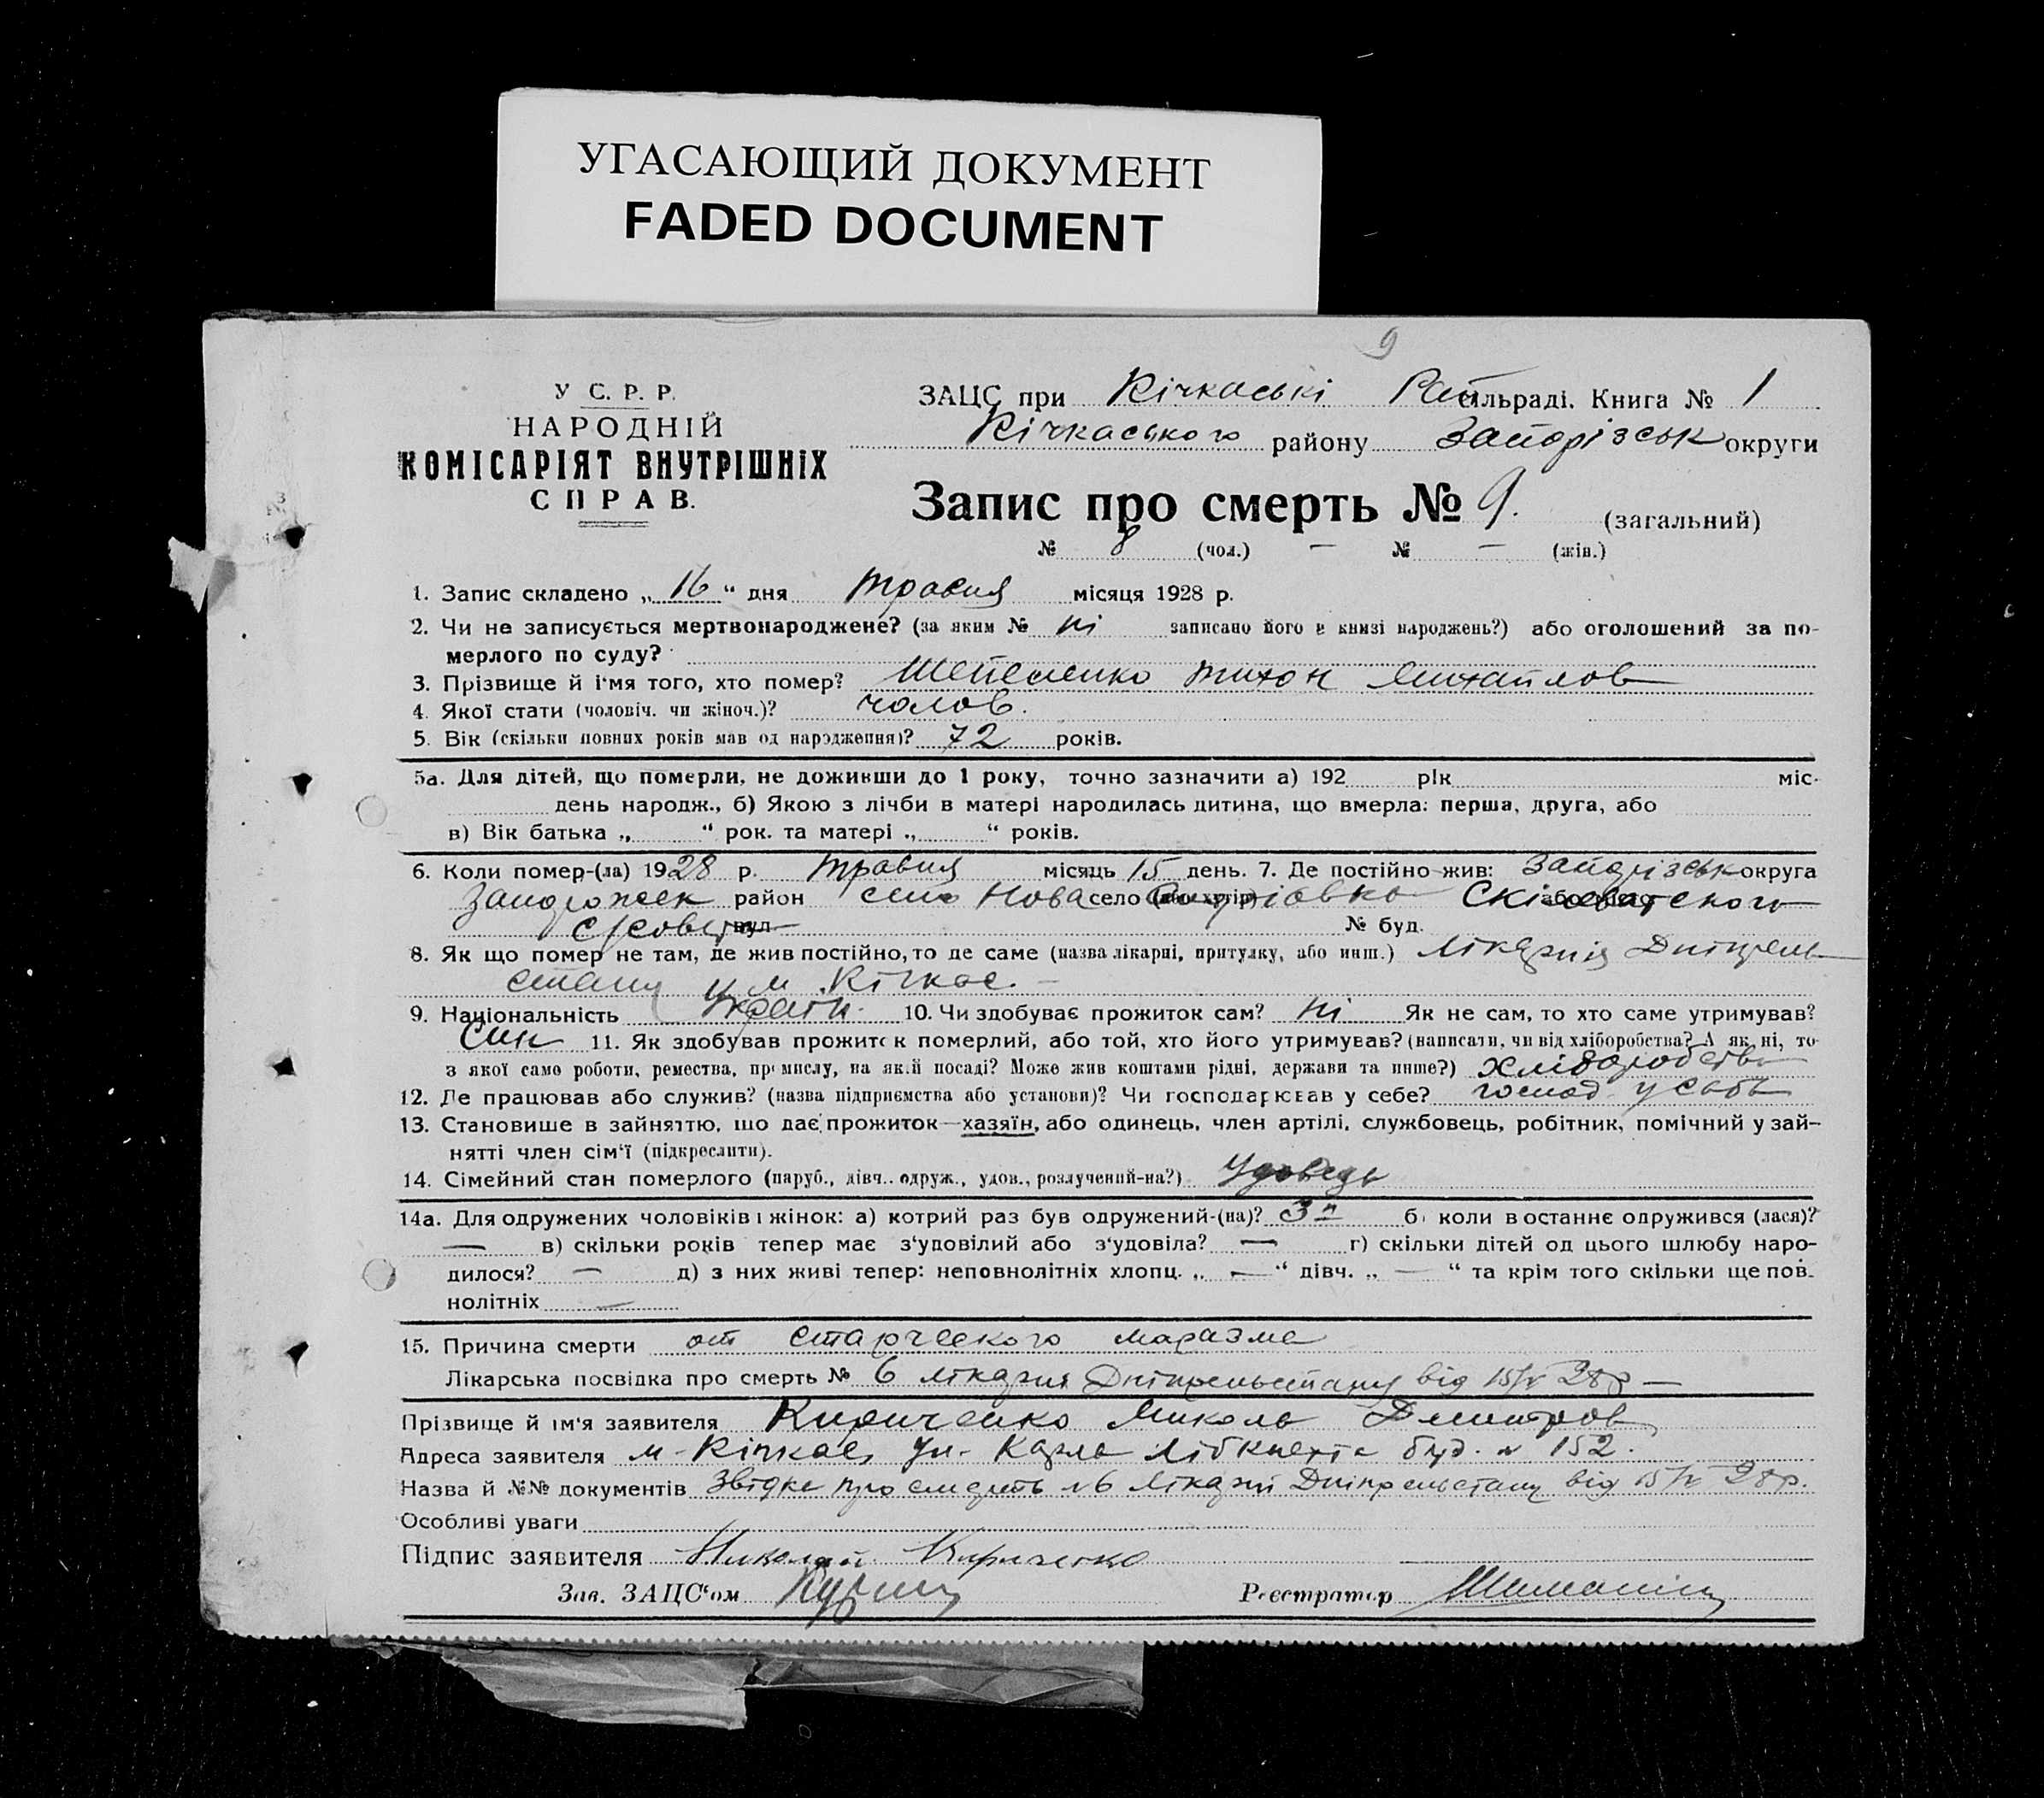 УГАСАЮЩИЙ ДОКУМЕНТ
FADED DOCUMENT
9
У С. Р. Р.
НАРОДНІЙ
КОМІСАРІЯТ ВНУТРІШНІХ
СПРАВ.
ЗАЦС при Кічкаські Рай сільраді. Книга № 1
Кічкаського району Запорізськ округи
Запис про смерть № 9. (загальний)
№ 8 (чол.) — № — (жін.)
1. Запис складено „ 16 “ дня травня місяця 1928 р.
2. Чи не записується мертвонароджене? (за яким № ні записано його в книзі народжень?) або оголошений за по-
мерлого по суду?
3. Прізвище й ім'я того, хто помер? Тихон Михайлов
4. Якої стати (чоловіч. чи жіноч.)? чолов.
5. Вік (скільки повних років мав од народження)? 72 років.
5а. Для дітей, що померли, не доживши до 1 року, точно зазначити а) 192 рік міс.
день народж., б) Якою з лічби в матері народилась дитина, що вмерла: перша, друга, або
в) Вік батька „ “ рок. та матері „ “ років.
6. Коли помер-(ла) 1928 р. травня місяць 15 день. 7. Де постійно жив: Запорізськ округа
Запорожск район село Нова село (або хутір) або місто
с/совету вул. № буд.
8. Як що помер не там, де жив постійно, то де саме (назва лікарні, притулку, або инш.) лікарня Дніпрель
стану у м. Кічкас. —
9. Національність Україн. 10. Чи здобуває прожиток сам? ні Як не сам, то хто саме утримував?
Син 11. Як здобував прожиток померлий, або той, хто його утримував? (написати, чи від хліборобства? А як ні, то
з якої само роботи, ремества, промислу, на якій посаді? Може жив коштами рідні, держави та инше?) хліборобство
12. Де працював або служив? (назва підприємства або установи)? Чи господарював у себе? господ. у себе
13. Становище в зайняттю, що дає прожиток—хазяїн, або одинець, член артілі, службовець, робітник, помічний у зай-
нятті член сім'ї (підкреслити).
14. Сімейний стан померлого (паруб., дівч., одруж., удов., розлучений-на?) Удовець
14а. Для одружених чоловіків і жінок: а) котрий раз був одружений-(на)? 3й б) коли востаннє одружився (лася)?
— в) скільки років тепер має з'удовілий або з'удовіла? — г) скільки дітей од цього шлюбу наро-
дилося? — д) з них живі тепер: неповнолітніх хлопц. „ — “ дівч. „ — “ та крім того скільки ще пов-
нолітніх —
15. Причина смерти от старческого маразма
Лікарська посвідка про смерть № 6 лікарня Дніпрельстану від 15/V 28р —
Прізвище й ім'я заявителя Кириченко Микола Дмитров
Адреса заявителя м. Кічкас, ул. Карла Лібкнехта буд. № 152.
Назва й №№ документів Звідка про смерть №6 лікарні Дніпрельстану від 15/V 28р.
Особливі уваги
Підпис заявителя Николай Кириченко
Зав. ЗАЦС'ом
Реєстратор